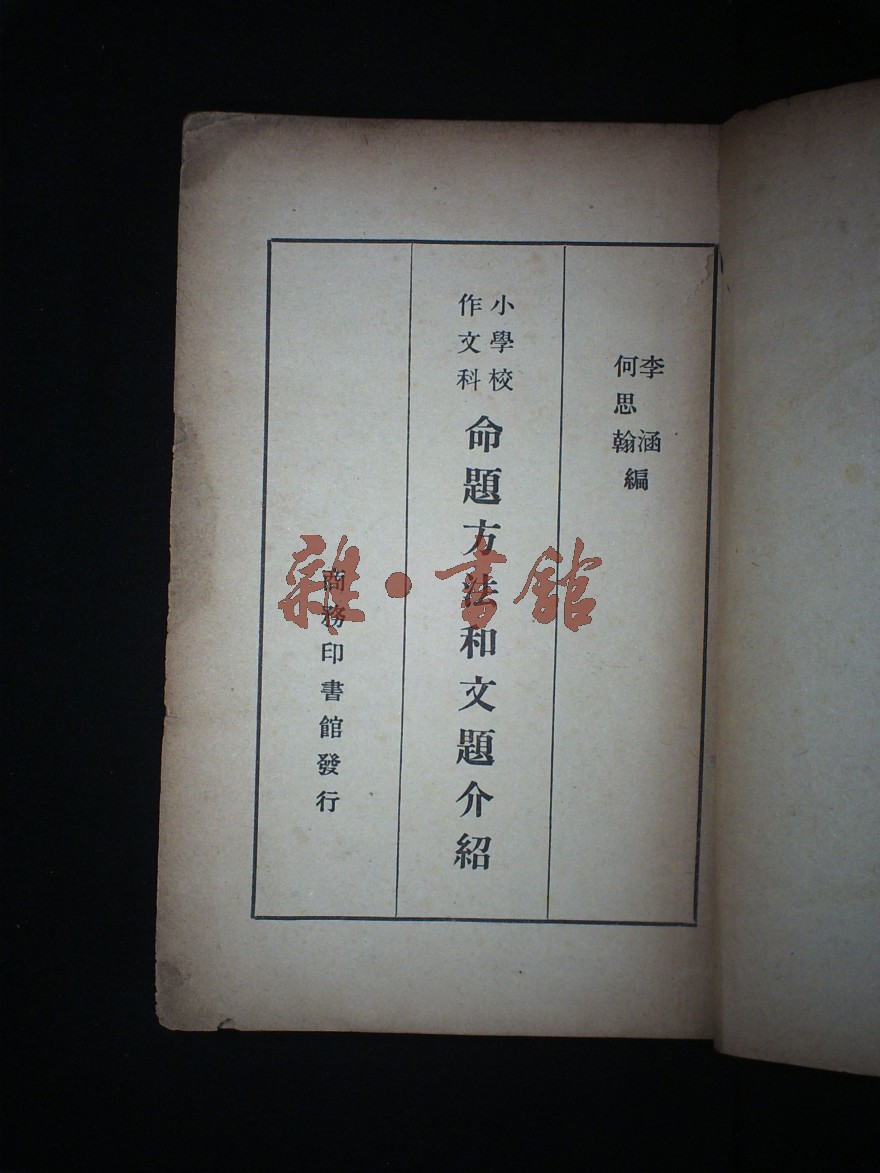 李涵
何思翰編
小學校
作文科
命題方法和文題介紹
商務印書館發行
雜·書館